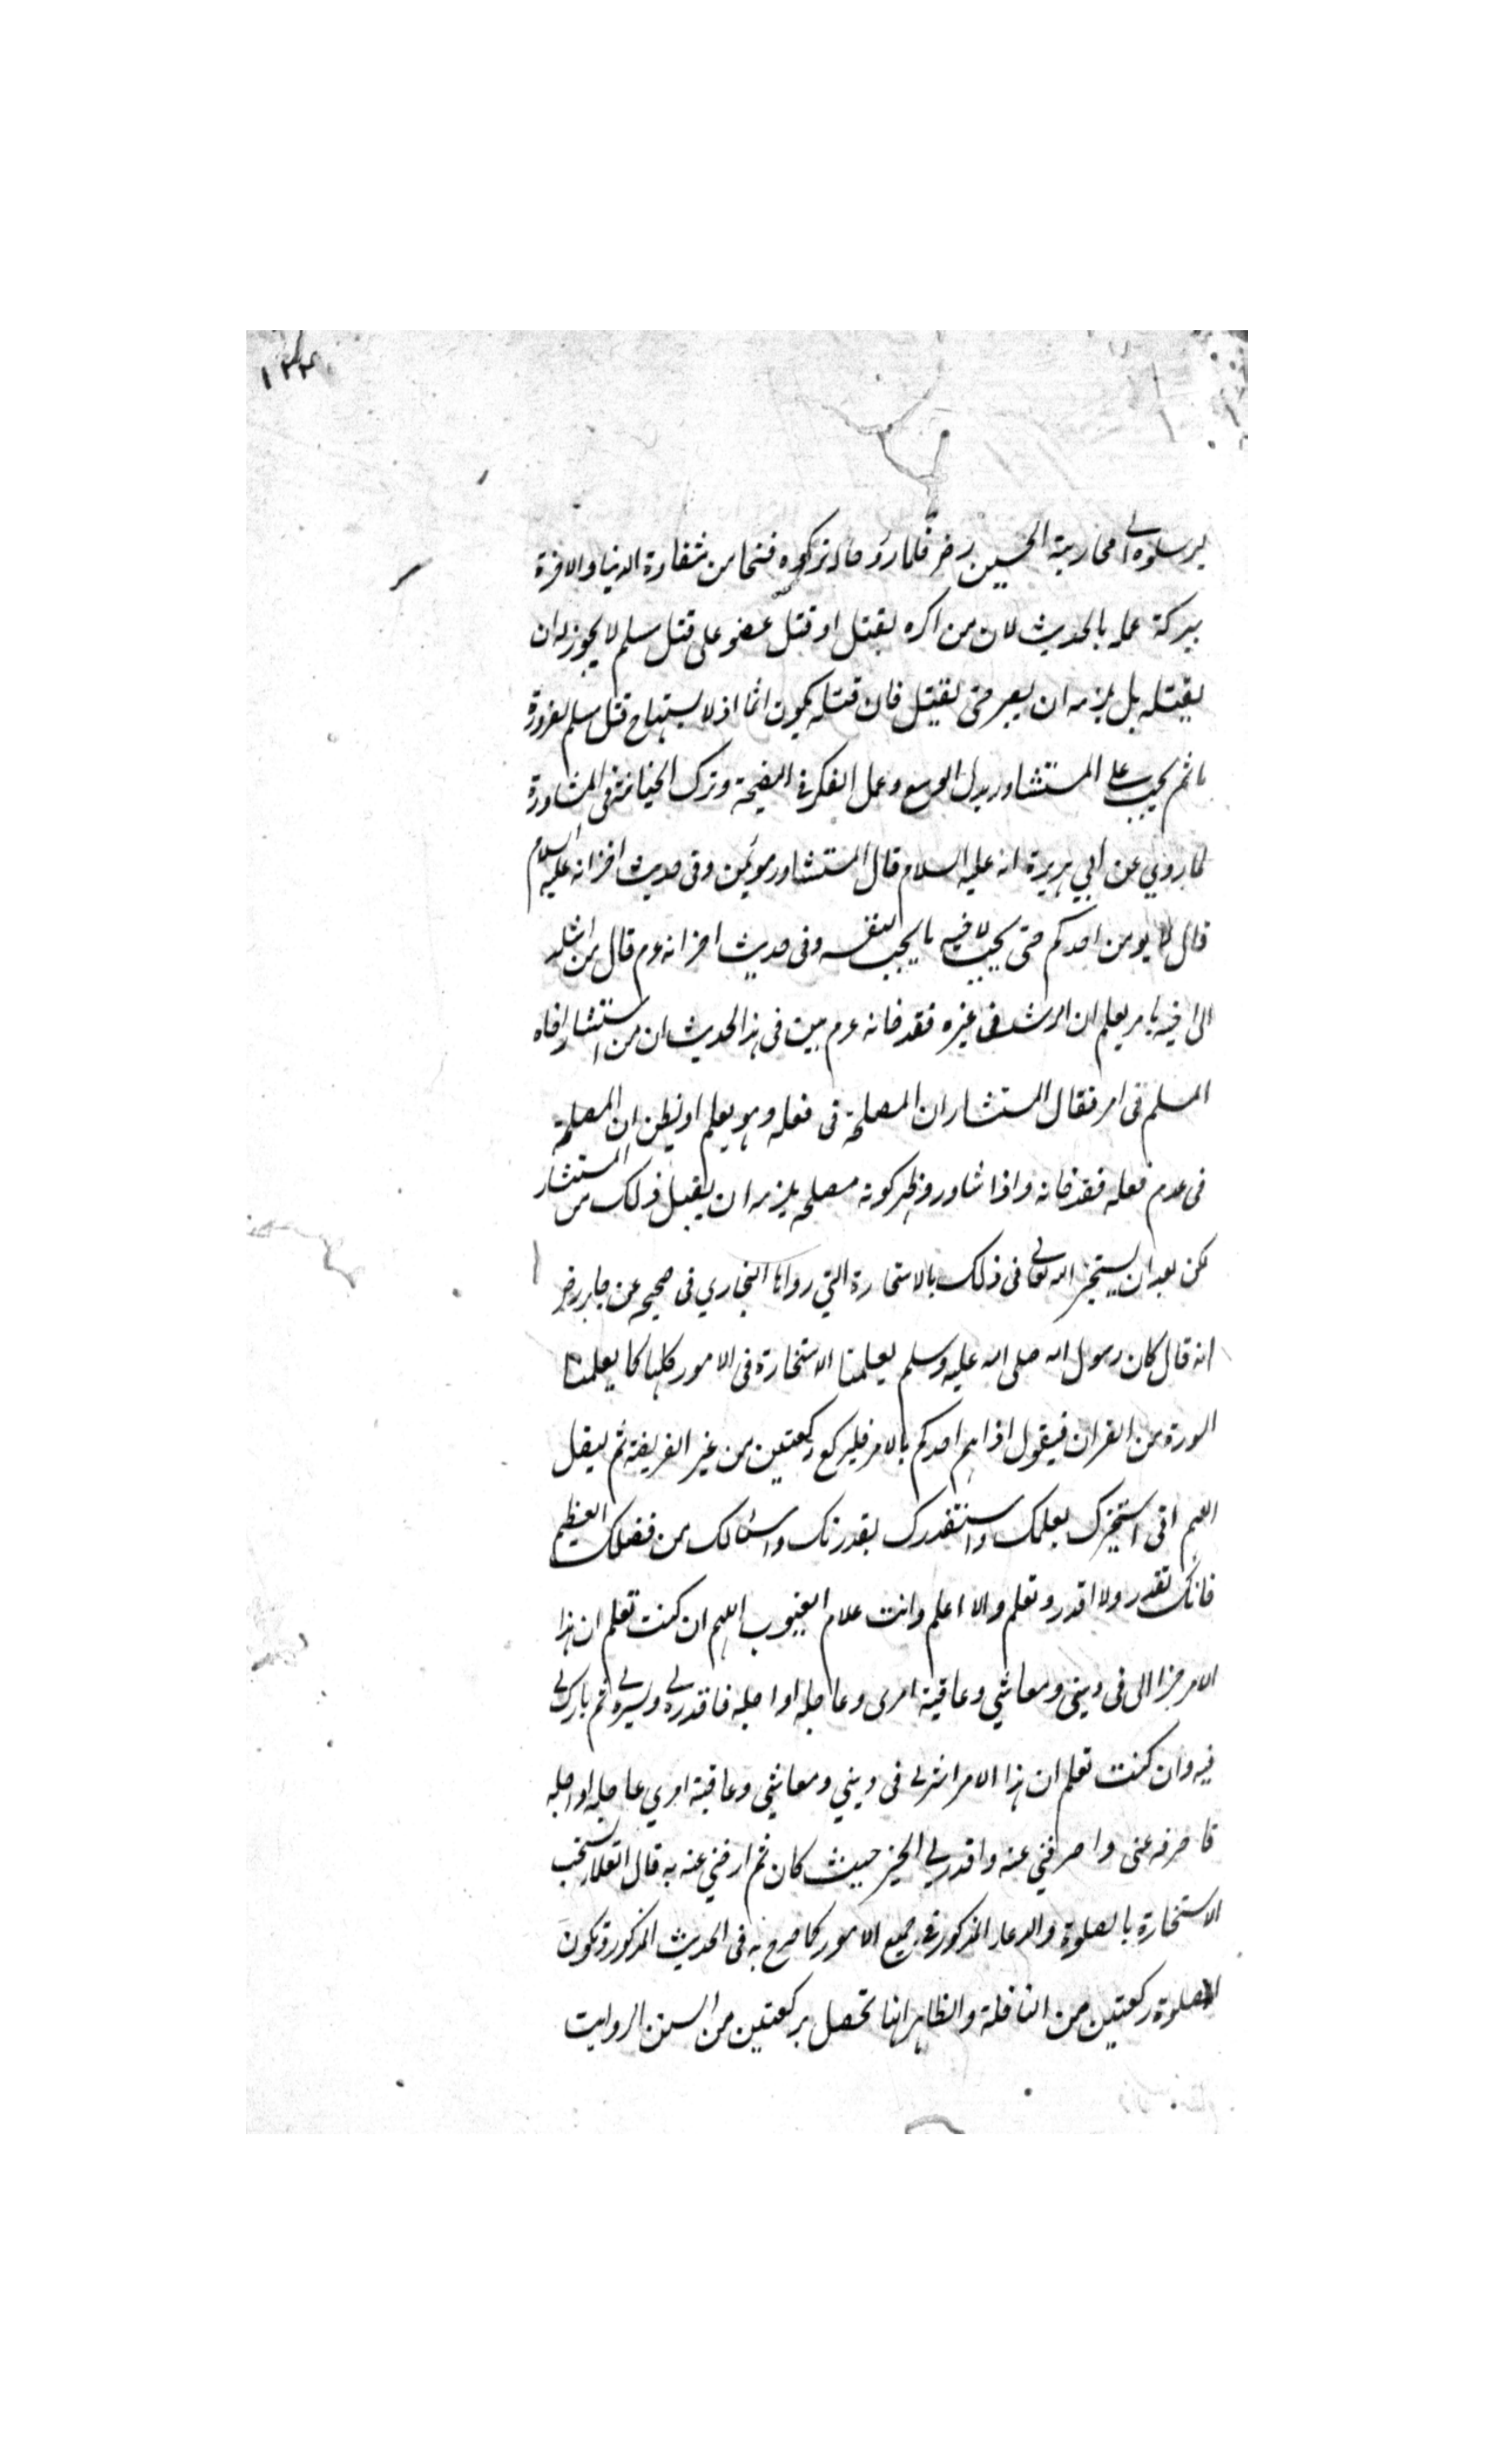 ١٢٢
يرسلوه الى محاربة الحسين رضر فلما رؤه كذلك تركوه فنجا من شقاوة الدنيا والاخرة
ببركة عمله بالحديث لان من اكره بقتل او قتل عضو على قتل مسلم لا يجوز له ان
يقتله بل يلزمه ان يصبر حتى يقتل فان قتله يكون اثما اذ لا يستباح قتل مسلم لضرورة
ما ثم يجب على المستشاور بذل الوسع وعمل الفكر في النصيحة وترك الخيانة فى المشاورة
لما روي عن ابي هريرة انه عليه السلام قال المستشاور مؤتمن وفى حديث اخر انه عليه السلام
قال لا يومن احدكم حتى يحب لاخيه ما يحب لنفسه وفى حديث اخر انه عم قال من اشار
الى اخيه بامر يعلم ان الرشد فى غيره فقد خانه عم بين فى هذا الحديث ان من استشار اخاه
المسلم فى امر فقال المستشار ان المصلحة فى فعله وهو يعلم او يظن ان المصلحة
فى عدم فعله فقد خانه واذا شاور وظهر كونه مصلحة يلزمه ان يقبل ذلك من المستشار
لكن بعد ان يستخير الله تعالى فى ذلك بالاستخارة التي رواها البخاري فى صحيحه عن جابر رضر
انه قال كان رسول الله صلى الله عليه وسلم يعلمنا الاستخارة فى الامور كلها كما يعلمنا
السورة من القران فيقول اذا هم احدكم بالامر فليركع ركعتين من غير الفريضة ثم ليقل
اللهم انى استخيرك بعلمك واستقدرك بقدرتك واسئالك من فضلك العظيم
فانك تقدر ولا اقدر وتعلم ولا اعلم وانت علام الغيوب اللهم ان كنت تعلم ان هذا
الامر خيرا لى فى ديني ومعاشي وعاقبة امرى وعاجله او اجله فاقدره لي ويسره لي ثم بارك لي
فيه وان كنت تعلم ان هذا الامر شر لي فى ديني ومعاشي وعاقبة امري عاجله او اجله
فاصرفه عنى واصرفني عنه واقدر لي الخير حيث كان ثم ارضني عنه به قال العلماء يستحب
الاستخارة بالصلوة والدعاء المذكور في جميع الامور كما صرح به فى الحديث المذكور وتكون
الصلوة ركعتين من النافلة والظاهر انها تحصل بركعتين من السنن الروايت